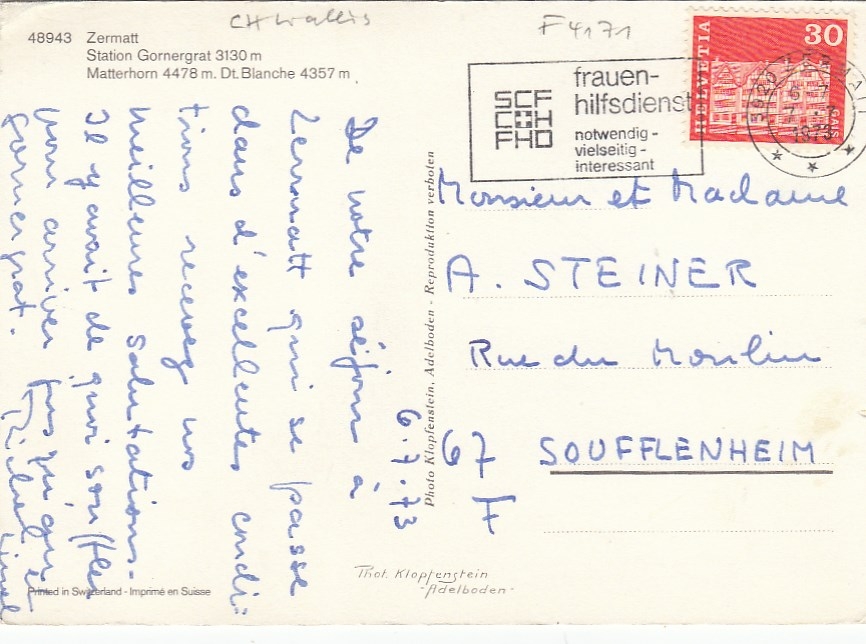 CH Wallis
F 4171
48943 Zermatt
Station Gornergrat 3130 m
Matterhorn 4478 m. Dt. Blanche 4357 m
HELVETIA
30
SCF
C+H
FHD
frauen-
hilfsdienst
notwendig -
vielseitig -
interessant
3920 ZERMATT
1973
6.7.73
De notre séjour à
Zermatt qui se passe
dans d'excellentes condi-
tions recevez nos
meilleures salutations.
Il y avait de quoi souffler
pour arriver jusqu'au
Gornergrat.
Photo Klopfenstein, Adelboden - Reproduktion verboten
Monsieur et Madame
A. STEINER
Rue du Moulin
67 SOUFFLENHEIM
F
Phot. Klopfenstein
-Adelboden-
Printed in Switzerland - Imprimé en Suisse